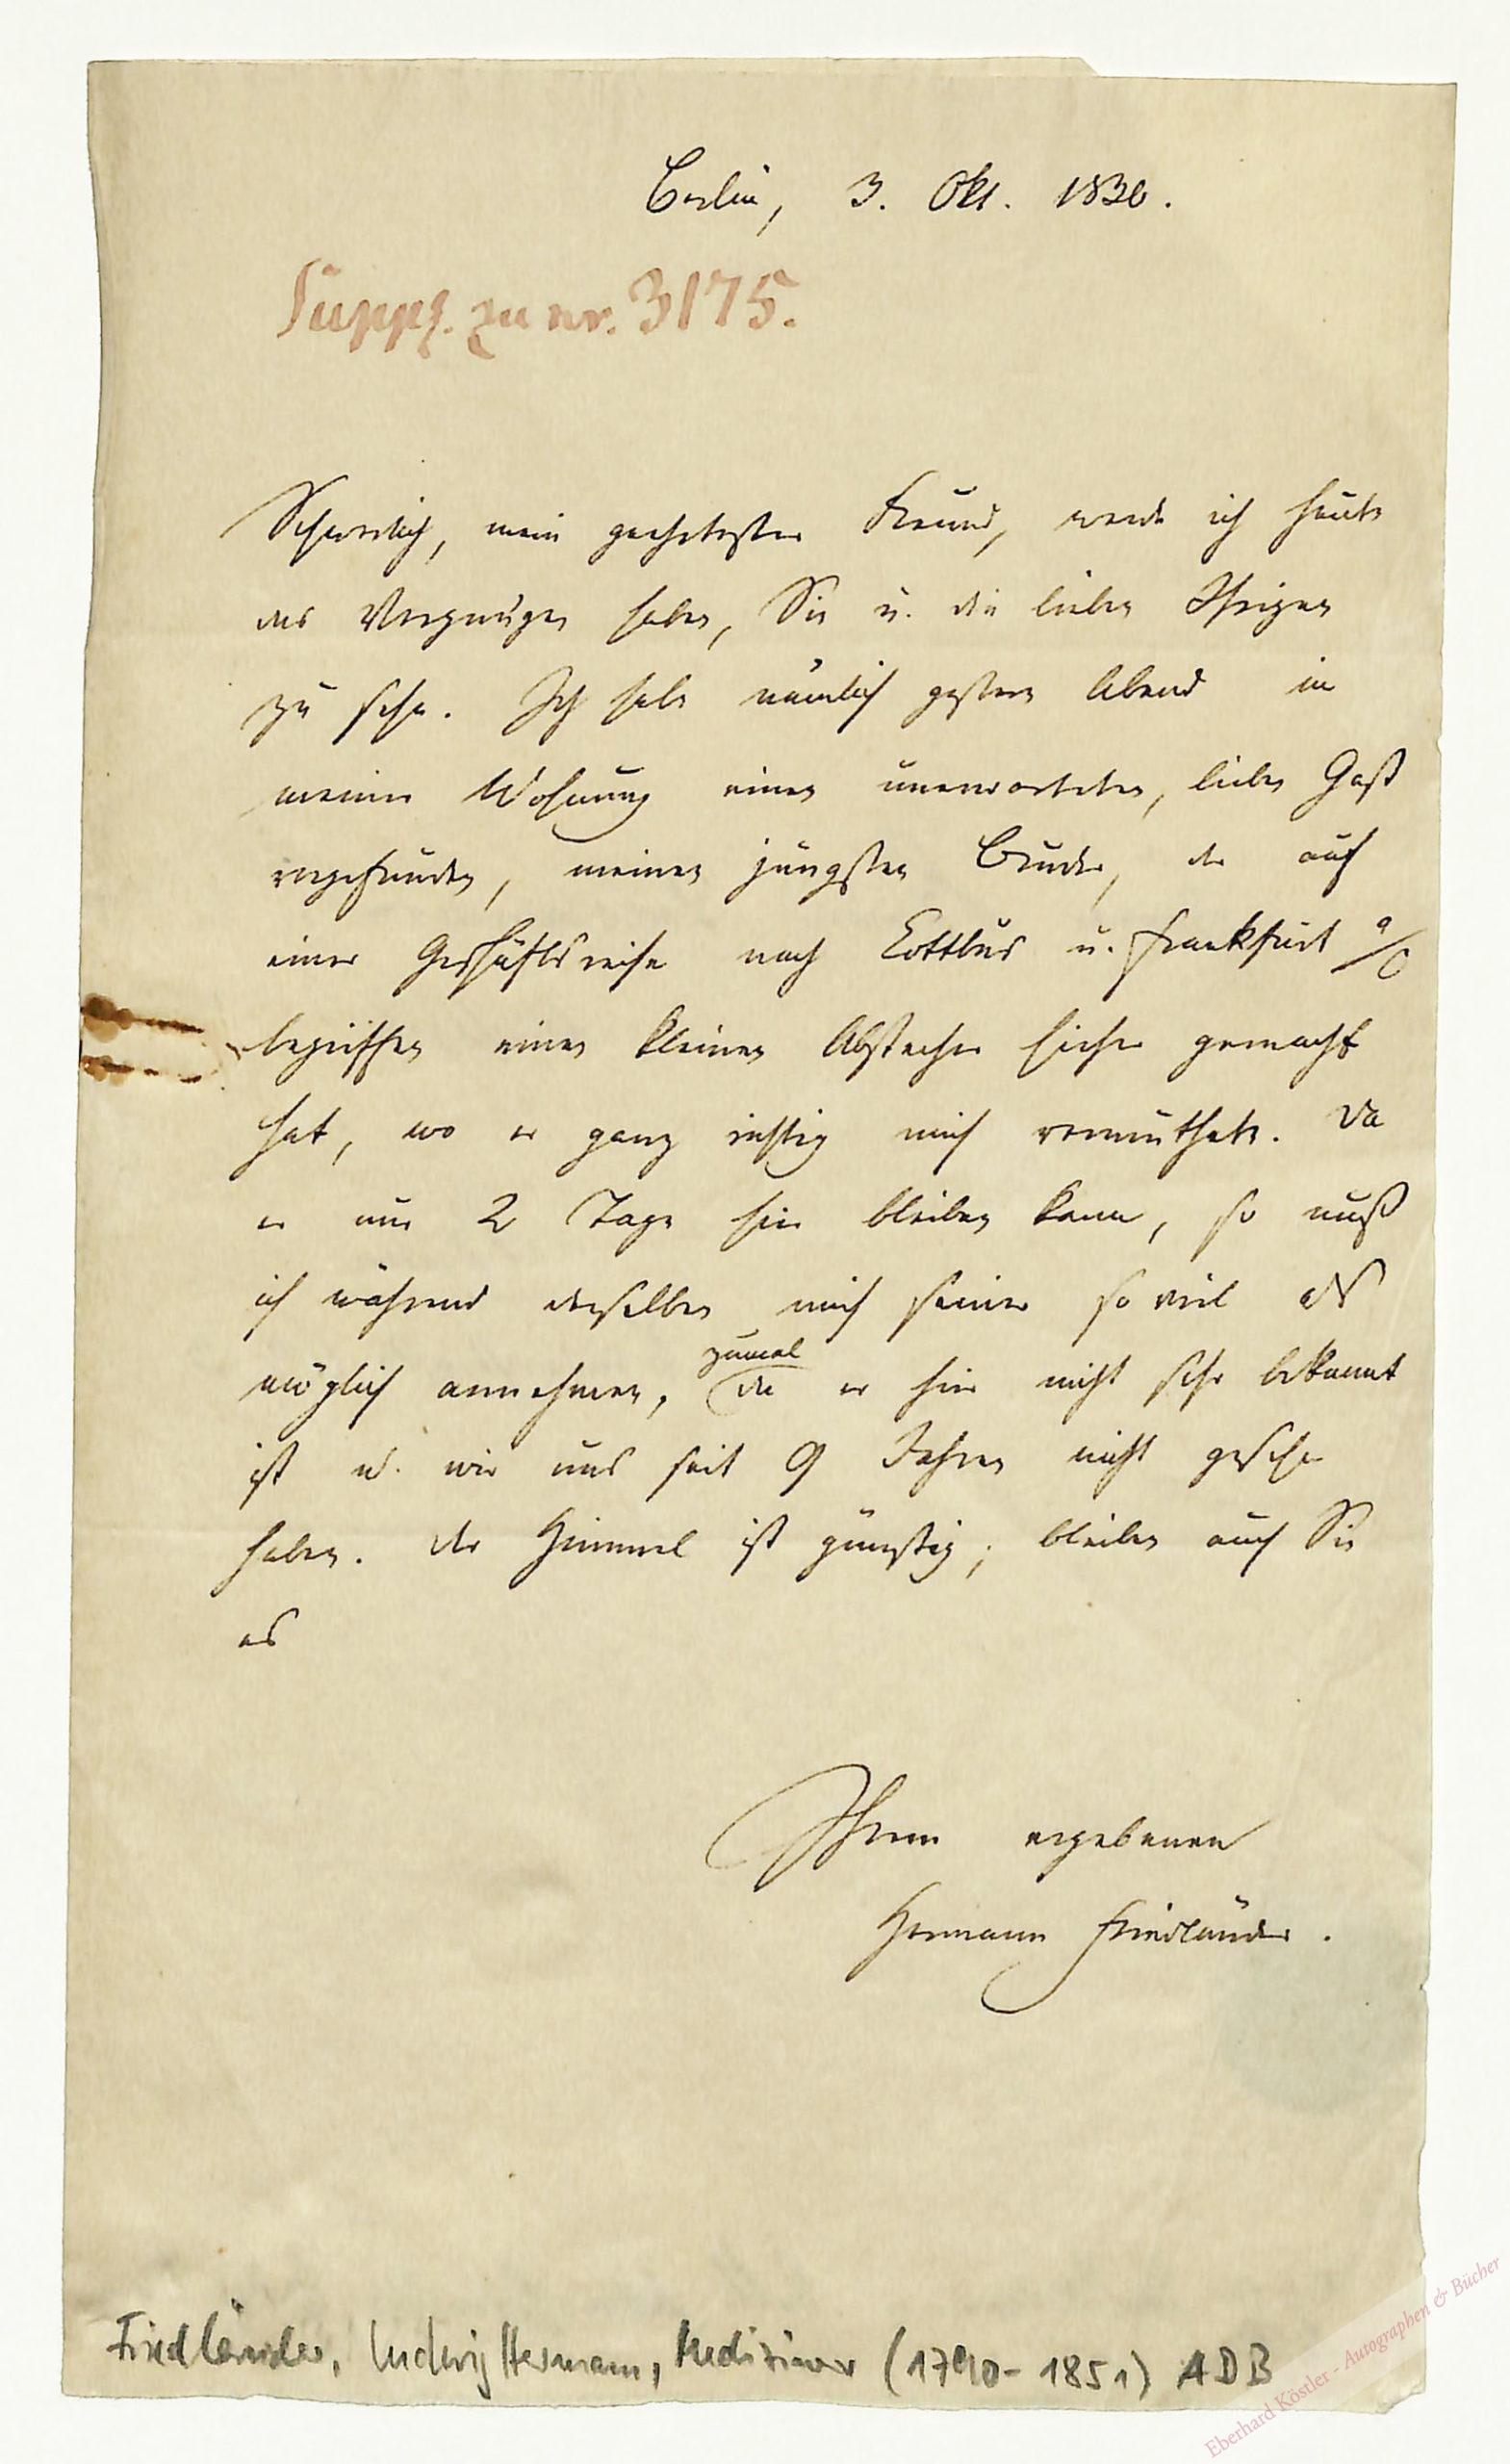 Berlin, 3. Okt. 1830.
Suppl. zu nr. 3175.
Schwerlich, mein geehrtester Freund, werde ich heute
das Vergnügen haben, Sie u. die lieben Ihrigen
zu sehn. Ich habe nämlich gestern Abend in
meiner Wohnung einen unerwarteten, lieben Gast
vorgefunden, meinen jüngsten Bruder, der auf
einer Geschäftsreise nach Cottbus u. Frankfurt a/O
begriffen einen kleinen Abstecher hieher gemacht
hat, wo er ganz richtig mich vermuthete. Da
er nur 2 Tage hier bleiben kann, so muß
ich während derselben mich seiner so viel als
möglich annehmen, zumal da er hier nicht sehr bekannt
ist u. wir uns seit 9 Jahren nicht gesehn
haben. Der Himmel ist günstig; bleiben auch Sie
es
Ihrem ergebenen
Hermann Friedländer.
Friedländer, Ludwig Hermann, Mediziner (1790-1851) ADB
Eberhard Köstler - Autographen & Bücher